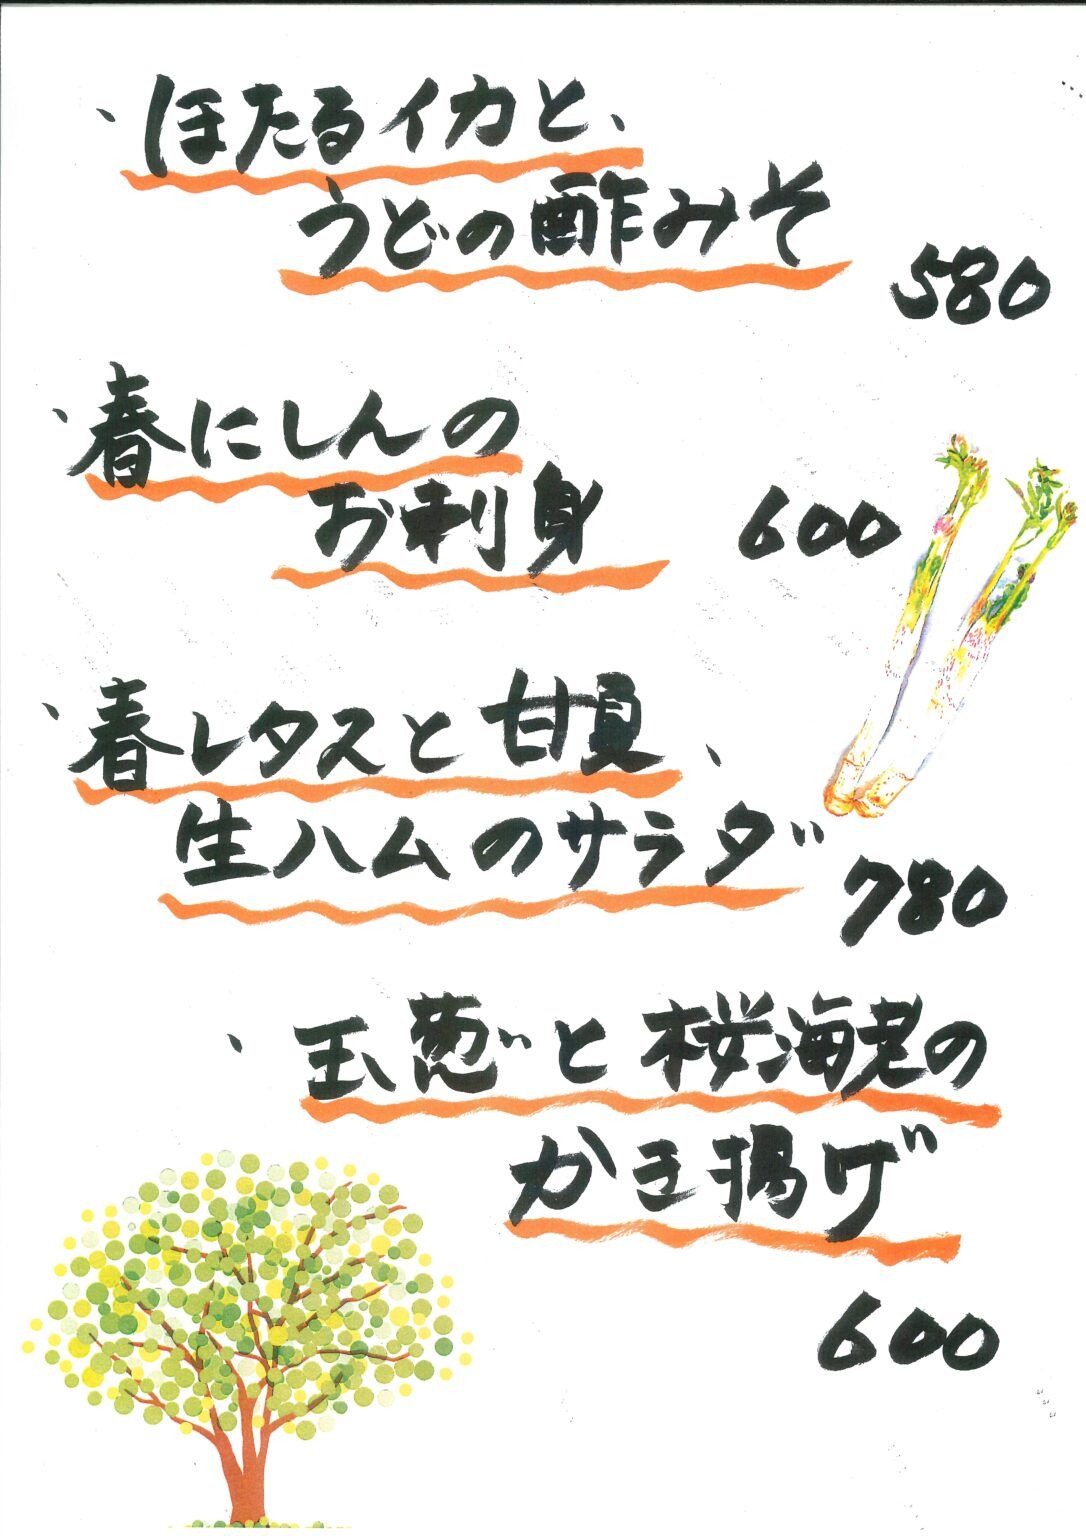 、ほたるイカと、
うどの酢みそ
580
、春にしんの
お刺身
600
、春レタスと甘夏、
生ハムのサラダ
780
、玉葱と桜海老の
かき揚げ
600